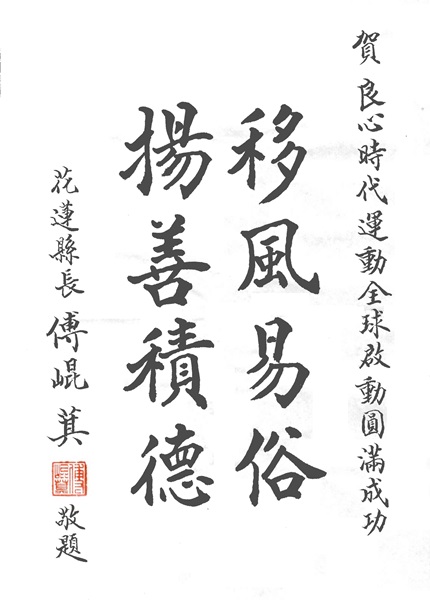 賀 良心時代運動全球啟動圓滿成功
移風易俗
揚善積德
花蓮縣長 傅崐萁 敬題